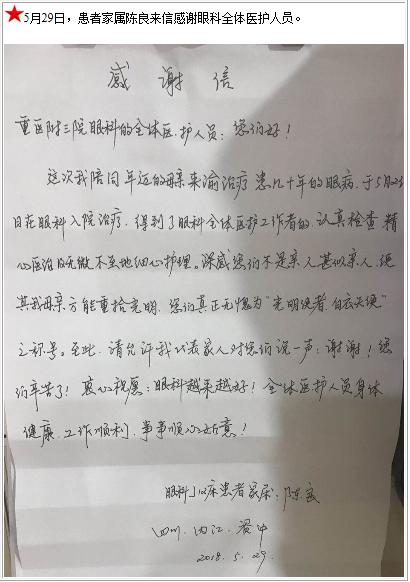 ★5月29日，患者家属陈良来信感谢眼科全体医护人员。
感 谢 信
重医附三院眼科的全体医护人员：您们好！
这次我陪同年迈的母亲来渝治疗患几十年的眼病，于5月2
日在眼科入院治疗，得到了眼科全体医护工作者的认真检查、精
心医治及无微不至地细心护理。深感您们不是亲人甚似亲人，使
其我母亲方能重拾光明，您们真正无愧为“光明使者、白衣天使”
之称号。至此，请允许我代表家人对您们说一声：谢谢！您
们辛苦了！衷心祝愿：眼科越来越好！全体医护人员身体
健康、工作顺利、事事顺心如意！
眼科 床患者家属：陈良
四川、内江、资中
2018.5.29.